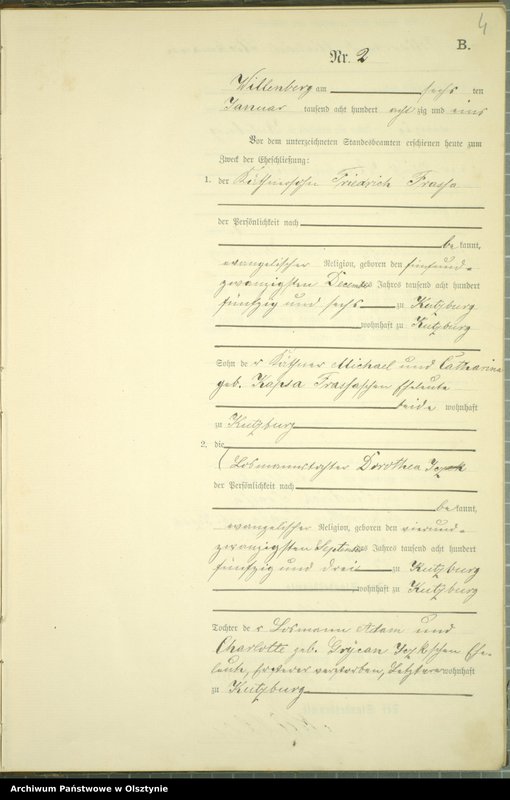 4
B.
Nr. 2
Willenberg am sechs ten
Januar tausend acht hundert achtzig und eins
Vor dem unterzeichneten Standesbeamten erschienen heute zum
Zweck der Eheschließung:
1. der Käthnersohn Friedrich
der Persönlichkeit nach
bekannt,
evangelischer Religion, geboren den fünfund-
zwanzigsten December des Jahres tausend acht hundert
fünfzig und sechs zu Kutzburg
wohnhaft zu Kutzburg
Sohn der Käthner Michael und Catharine
geb. Eheleute
beide wohnhaft
zu Kutzburg
2. die
Losmannstochter Dorothea
der Persönlichkeit nach
bekannt,
evangelischer Religion, geboren den vierund-
zwanzigsten September des Jahres tausend acht hundert
fünfzig und drei zu Kutzburg
wohnhaft zu Kutzburg
Tochter der Losmann Adam und
Charlotte geb. Ehe-
leute, Ersterer verstorben, Letztere wohnhaft
zu Kutzburg
Archiwum Państwowe w Olsztynie